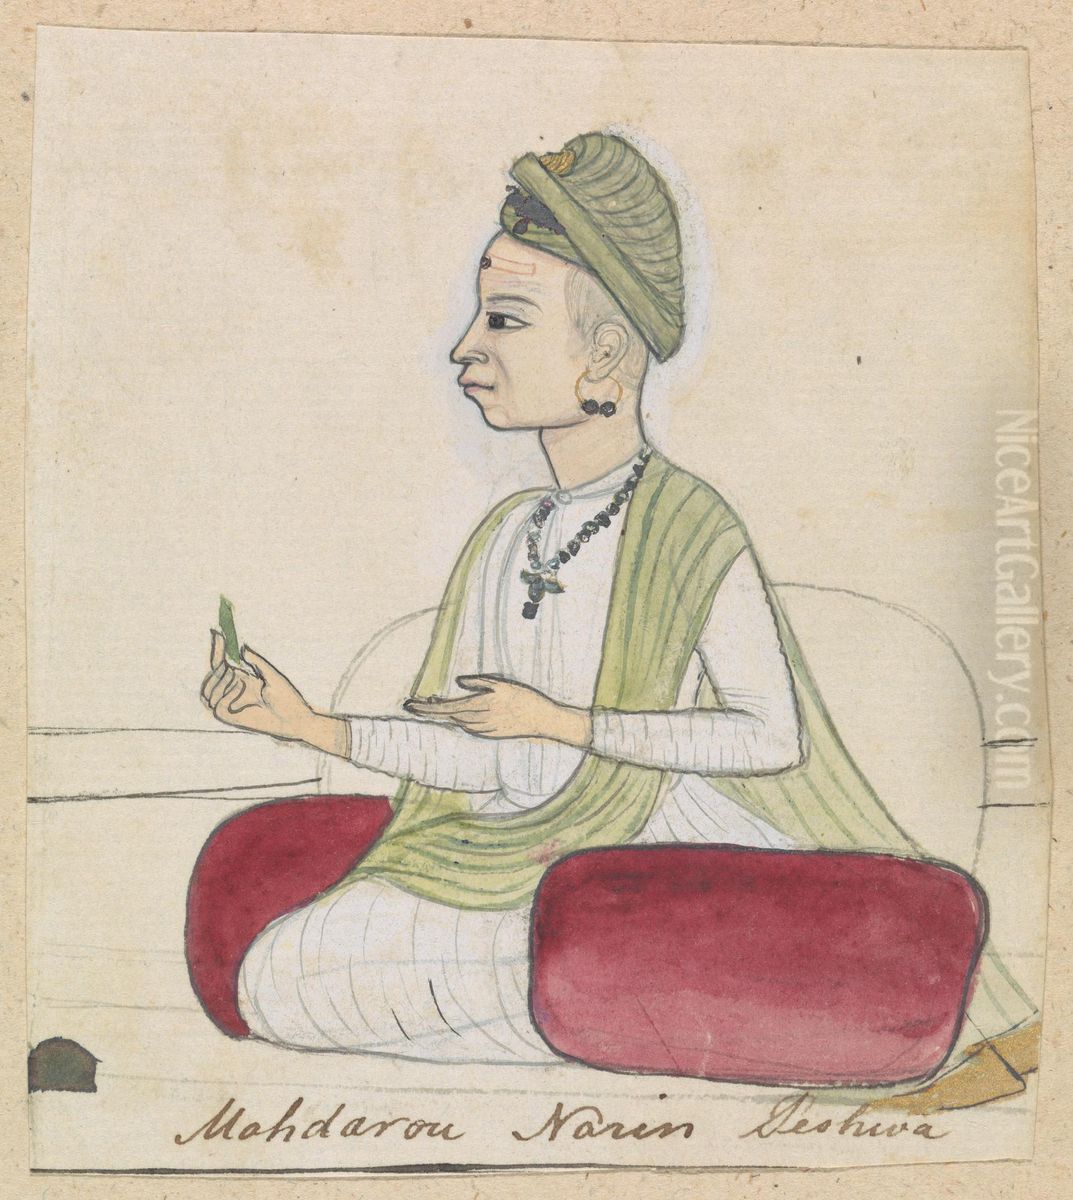 NiceArtGallery.com
Mahdarou Narin Peshwa